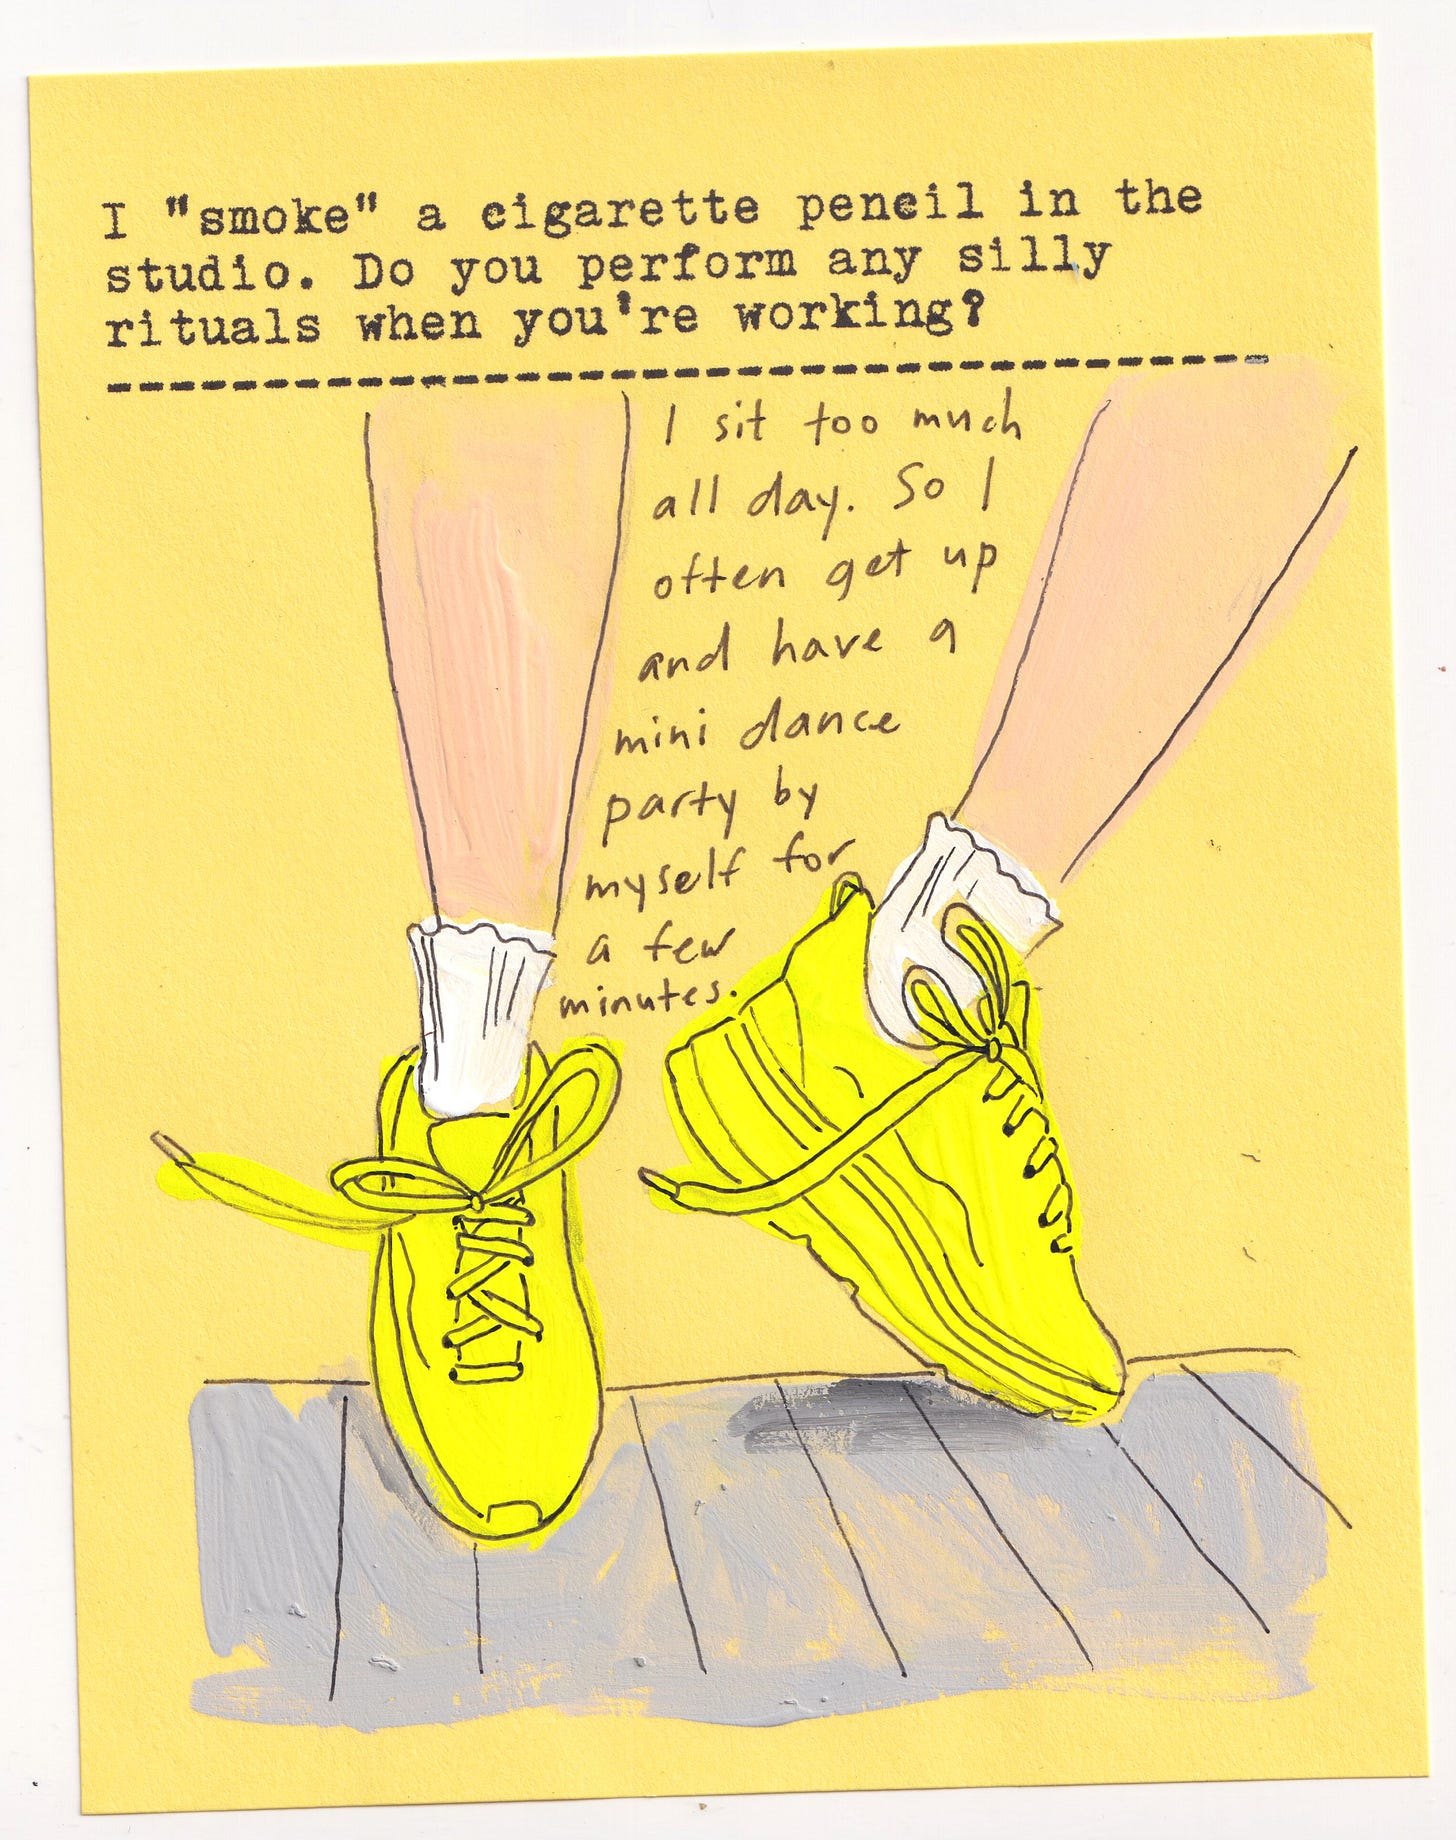 I "smoke" a cigarette pencil in the
studio. Do you perform any silly
rituals when you're working?
I sit too much
all day. So I
often get up
and have a
mini dance
party by
myself for
a few
minutes.